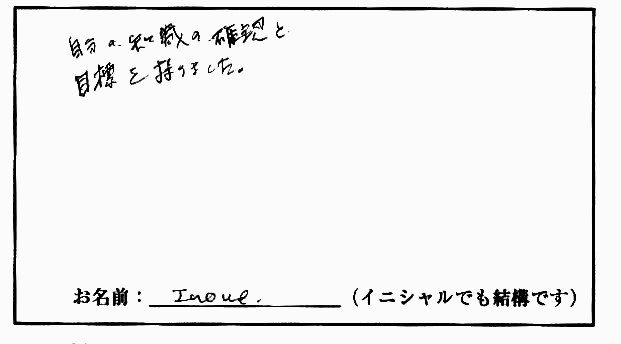 自分の知識の確認と
目標を持ちました。
お名前：Inoue.（イニシャルでも結構です）